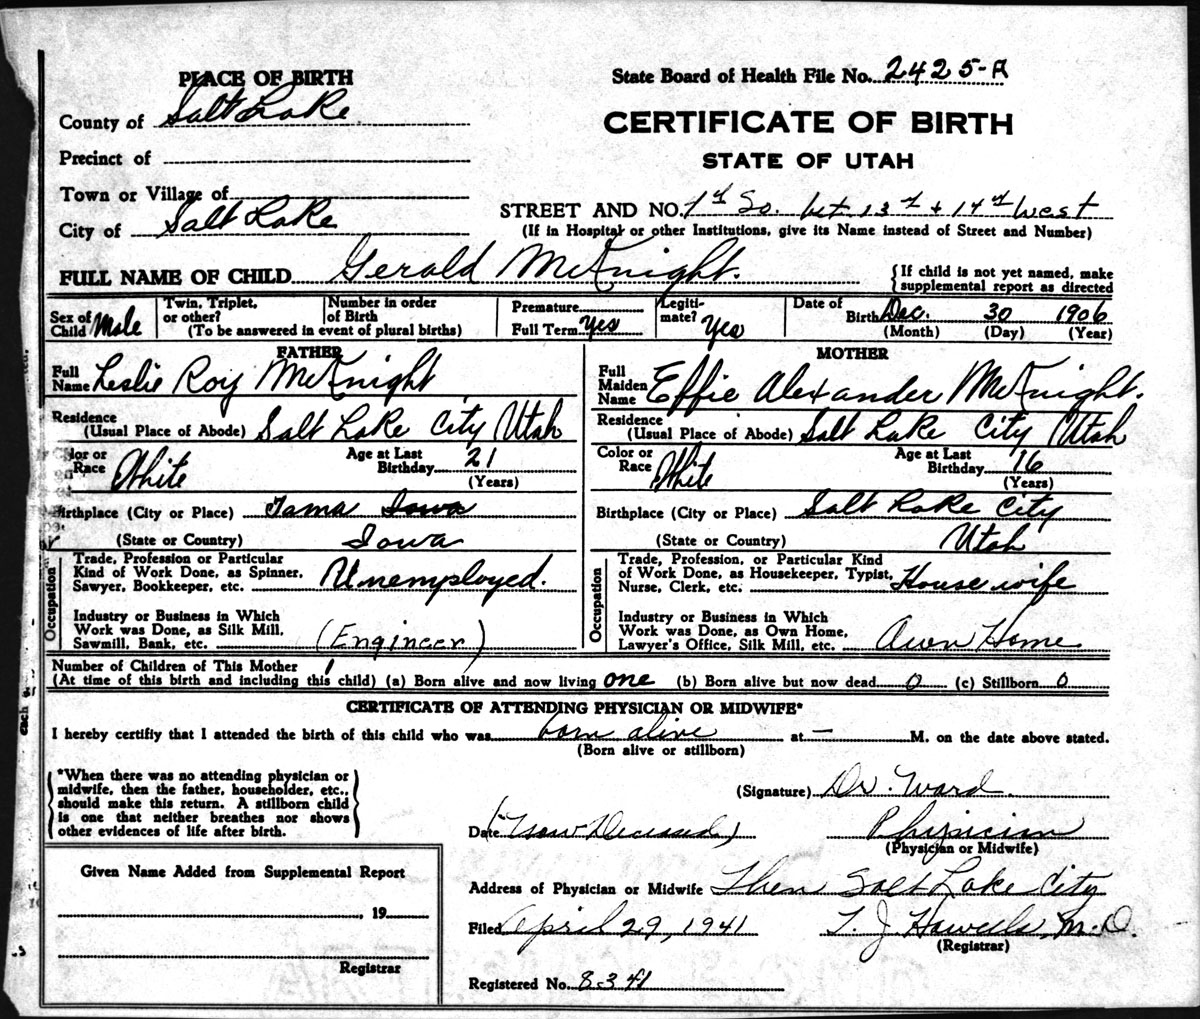 PLACE OF BIRTH
State Board of Health File No. 2425-A
County of Salt Lake
CERTIFICATE OF BIRTH
Precinct of
STATE OF UTAH
Town or Village of
STREET AND NO. 1st So. bet 13th + 14th West
City of Salt Lake
(If in Hospital or other Institutions, give its Name instead of Street and Number)
FULL NAME OF CHILD Gerald McKnight.
{If child is not yet named, make
supplemental report as directed
Sex of Child Male
Twin, Triplet, or other?
Number in order of Birth
(To be answered in event of plural births)
Premature
Full Term Yes
Legiti-mate? Yes
Date of Birth Dec. 30 1906
(Month) (Day) (Year)
FATHER
Full Name Leslie Roy McKnight
Residence
(Usual Place of Abode) Salt Lake City Utah
Color or Race White
Age at Last Birthday 21
(Years)
Birthplace (City or Place) Tama Iowa
(State or Country) Iowa
Occupation
Trade, Profession or Particular
Kind of Work Done, as Spinner,
Sawyer, Bookkeeper, etc. Unemployed.
Industry or Business in Which
Work was Done, as Silk Mill,
Sawmill, Bank, etc. (Engineer)
MOTHER
Full Maiden Name Effie Alexander McKnight.
Residence
(Usual Place of Abode) Salt Lake City Utah
Color or Race White
Age at Last Birthday 16
(Years)
Birthplace (City or Place) Salt Lake City
(State or Country) Utah
Occupation
Trade, Profession, or Particular Kind
of Work Done, as Housekeeper, Typist,
Nurse, Clerk, etc. House wife
Industry or Business in Which
Work was Done, as Own Home,
Lawyer's Office, Silk Mill, etc. Own Home
Number of Children of This Mother 1
(At time of this birth and including this child) (a) Born alive and now living one (b) Born alive but now dead 0 (c) Stillborn 0
CERTIFICATE OF ATTENDING PHYSICIAN OR MIDWIFE*
I hereby certifiy that I attended the birth of this child who was born alive at — M. on the date above stated.
(Born alive or stillborn)
*When there was no attending physician or
midwife, then the father, householder, etc.,
should make this return. A stillborn child
is one that neither breathes nor shows
other evidences of life after birth.
(Signature) Dr. Ward.
Date (Now Deceased) Physician
(Physician or Midwife)
Given Name Added from Supplemental Report
, 19
Registrar
Address of Physician or Midwife Then Salt Lake City
Filed April 29, 1941 T. J. Howells, M.D.
(Registrar)
Registered No. 8-3-41
each